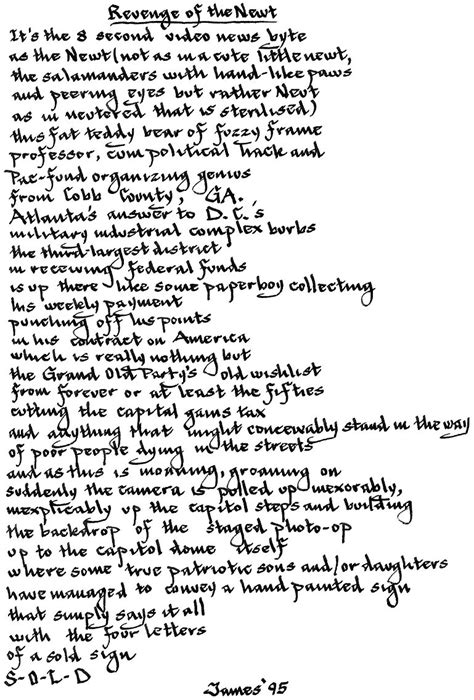 Revenge of the Newt
It's the 8 second video news byte
as the Newt (not as in a cute little newt,
the salamanders with hand-like paws
and peering eyes but rather Neut
as in neutered that is sterilised)
this fat teddy bear of fuzzy frame
professor, cum political hack and
Pac-fund organizing genius
from Cobb County, GA.
Atlanta's answer to D.C.'s
military industrial complex burbs
the third-largest district
in receiving federal funds
is up there like some paperboy collecting
his weekly payment
punching off his points
in his contract on America
which is really nothing but
the Grand Old Party's old wishlist
from forever or at least the fifties
cutting the capital gains tax
and anything that might conceivably stand in the way
of poor people dying in the streets
and as this is moaning, groaning on
suddenly the camera is pulled up inexorably,
inexplicably up the capitol steps and building
the backdrop of the staged photo-op
up to the capitol dome itself
where some true patriotic sons and/or daughters
have managed to convey a hand painted sign
that simply says it all
with the four letters
of a sold sign
S-O-L-D
James '95